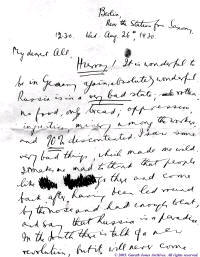 Berlin,
Near the Station for Saxony.
12.30. Wed. Aug. 26th 1930.
My dearest All.
Hurray! It is wonderful to
be in Germany again, absolutely wonderful.
Russia is in a very bad state, rotten,
no food, only bread; oppression,
injustice, misery among the workers
and 90% discontented. I saw some
very bad things, which made me mad,
to think that people
like go there and come
back, after having been led round
by the nose and had enough to eat,
and say that Russia is a paradise.
In the South there is talk of a new
revolution, but it will never come
© 2003. Gareth Jones Archives. All rights